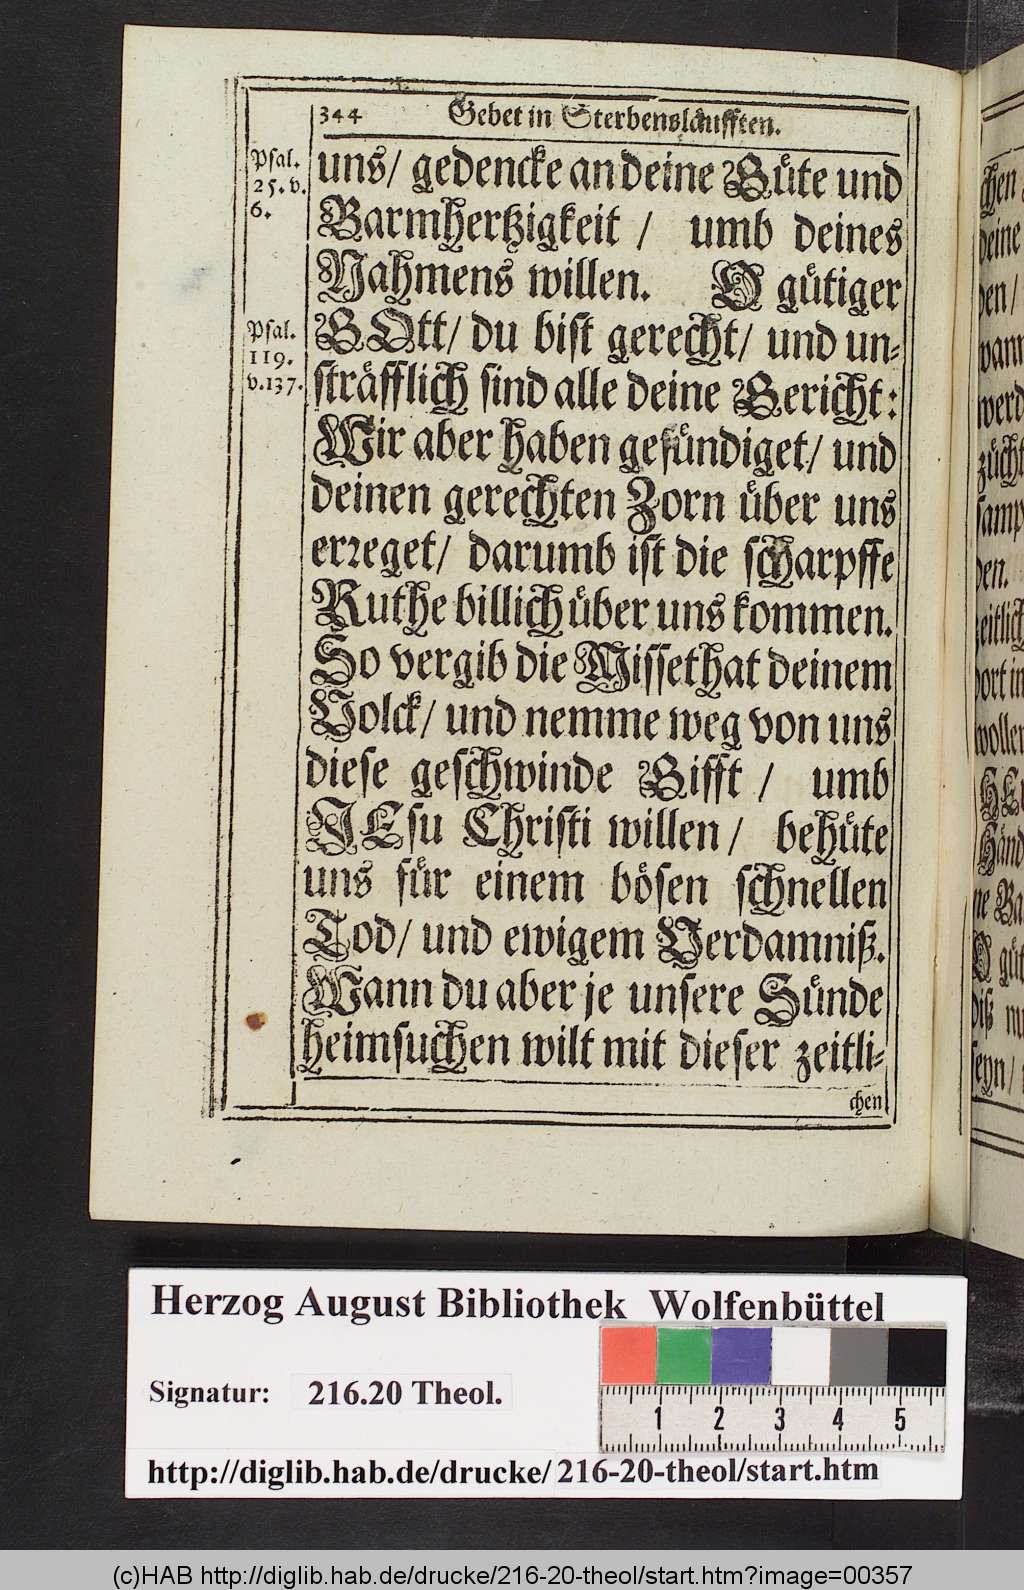 344 Gebet in Sterbensläufften.
Psal.
25. v.
6.
uns/ gedencke an deine Güte und
Barmhertzigkeit / umb deines
Nahmens willen. O gütiger
Psal.
119.
v. 137.
GOtt/ du bist gerecht/ und un-
sträfflich sind alle deine Gericht:
Wir aber haben gesündiget/ und
deinen gerechten Zorn über uns
erreget/ darumb ist die scharpffe
Ruthe billich über uns kommen.
So vergib die Missethat deinem
Volck/ und nemme weg von uns
diese geschwinde Gifft / umb
JEsu Christi willen/ behüte
uns für einem bösen schnellen
Tod/ und ewigem Verdamniß.
Wann du aber je unsere Sünde
heimsuchen wilt mit dieser zeitli-
chen
Herzog August Bibliothek Wolfenbüttel
Signatur: 216.20 Theol.
1 2 3 4 5
http://diglib.hab.de/drucke/216-20-theol/start.htm
(c)HAB http://diglib.hab.de/drucke/216-20-theol/start.htm?image=00357